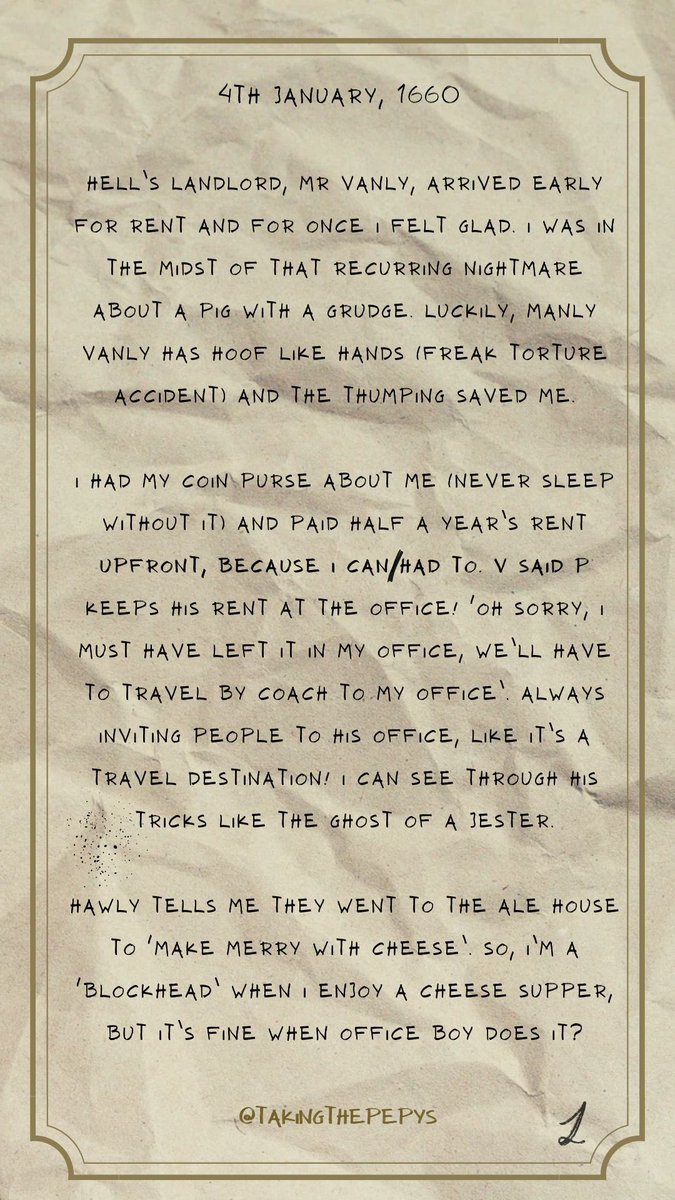 4TH JANUARY, 1660
HELL'S LANDLORD, MR VANLY, ARRIVED EARLY
FOR RENT AND FOR ONCE I FELT GLAD. I WAS IN
THE MIDST OF THAT RECURRING NIGHTMARE
ABOUT A PIG WITH A GRUDGE. LUCKILY, MANLY
VANLY HAS HOOF LIKE HANDS (FREAK TORTURE
ACCIDENT) AND THE THUMPING SAVED ME.
I HAD MY COIN PURSE ABOUT ME (NEVER SLEEP
WITHOUT IT) AND PAID HALF A YEAR'S RENT
UPFRONT, BECAUSE I CAN/HAD TO. V SAID P
KEEPS HIS RENT AT THE OFFICE! 'OH SORRY, I
MUST HAVE LEFT IT IN MY OFFICE, WE'LL HAVE
TO TRAVEL BY COACH TO MY OFFICE'. ALWAYS
INVITING PEOPLE TO HIS OFFICE, LIKE IT'S A
TRAVEL DESTINATION! I CAN SEE THROUGH HIS
TRICKS LIKE THE GHOST OF A JESTER.
HAWLY TELLS ME THEY WENT TO THE ALE HOUSE
TO 'MAKE MERRY WITH CHEESE'. SO, I'M A
'BLOCKHEAD' WHEN I ENJOY A CHEESE SUPPER,
BUT IT'S FINE WHEN OFFICE BOY DOES IT?
@TAKINGTHEPEPYS
1